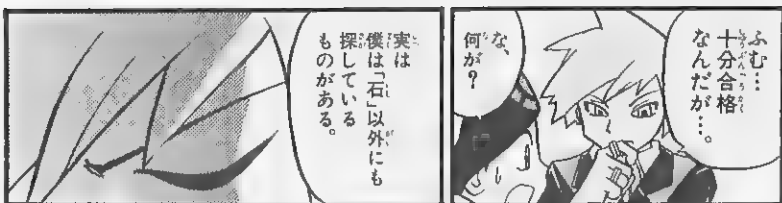 ふむ…
十分合格
なんだが…。
な、
何が?
実は
僕は「石」以外にも
探している
ものがある。